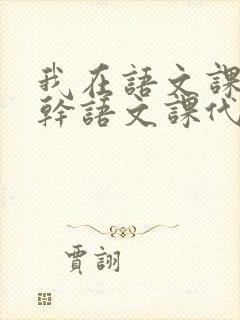 我在語文課
幹語文課代
賈詡